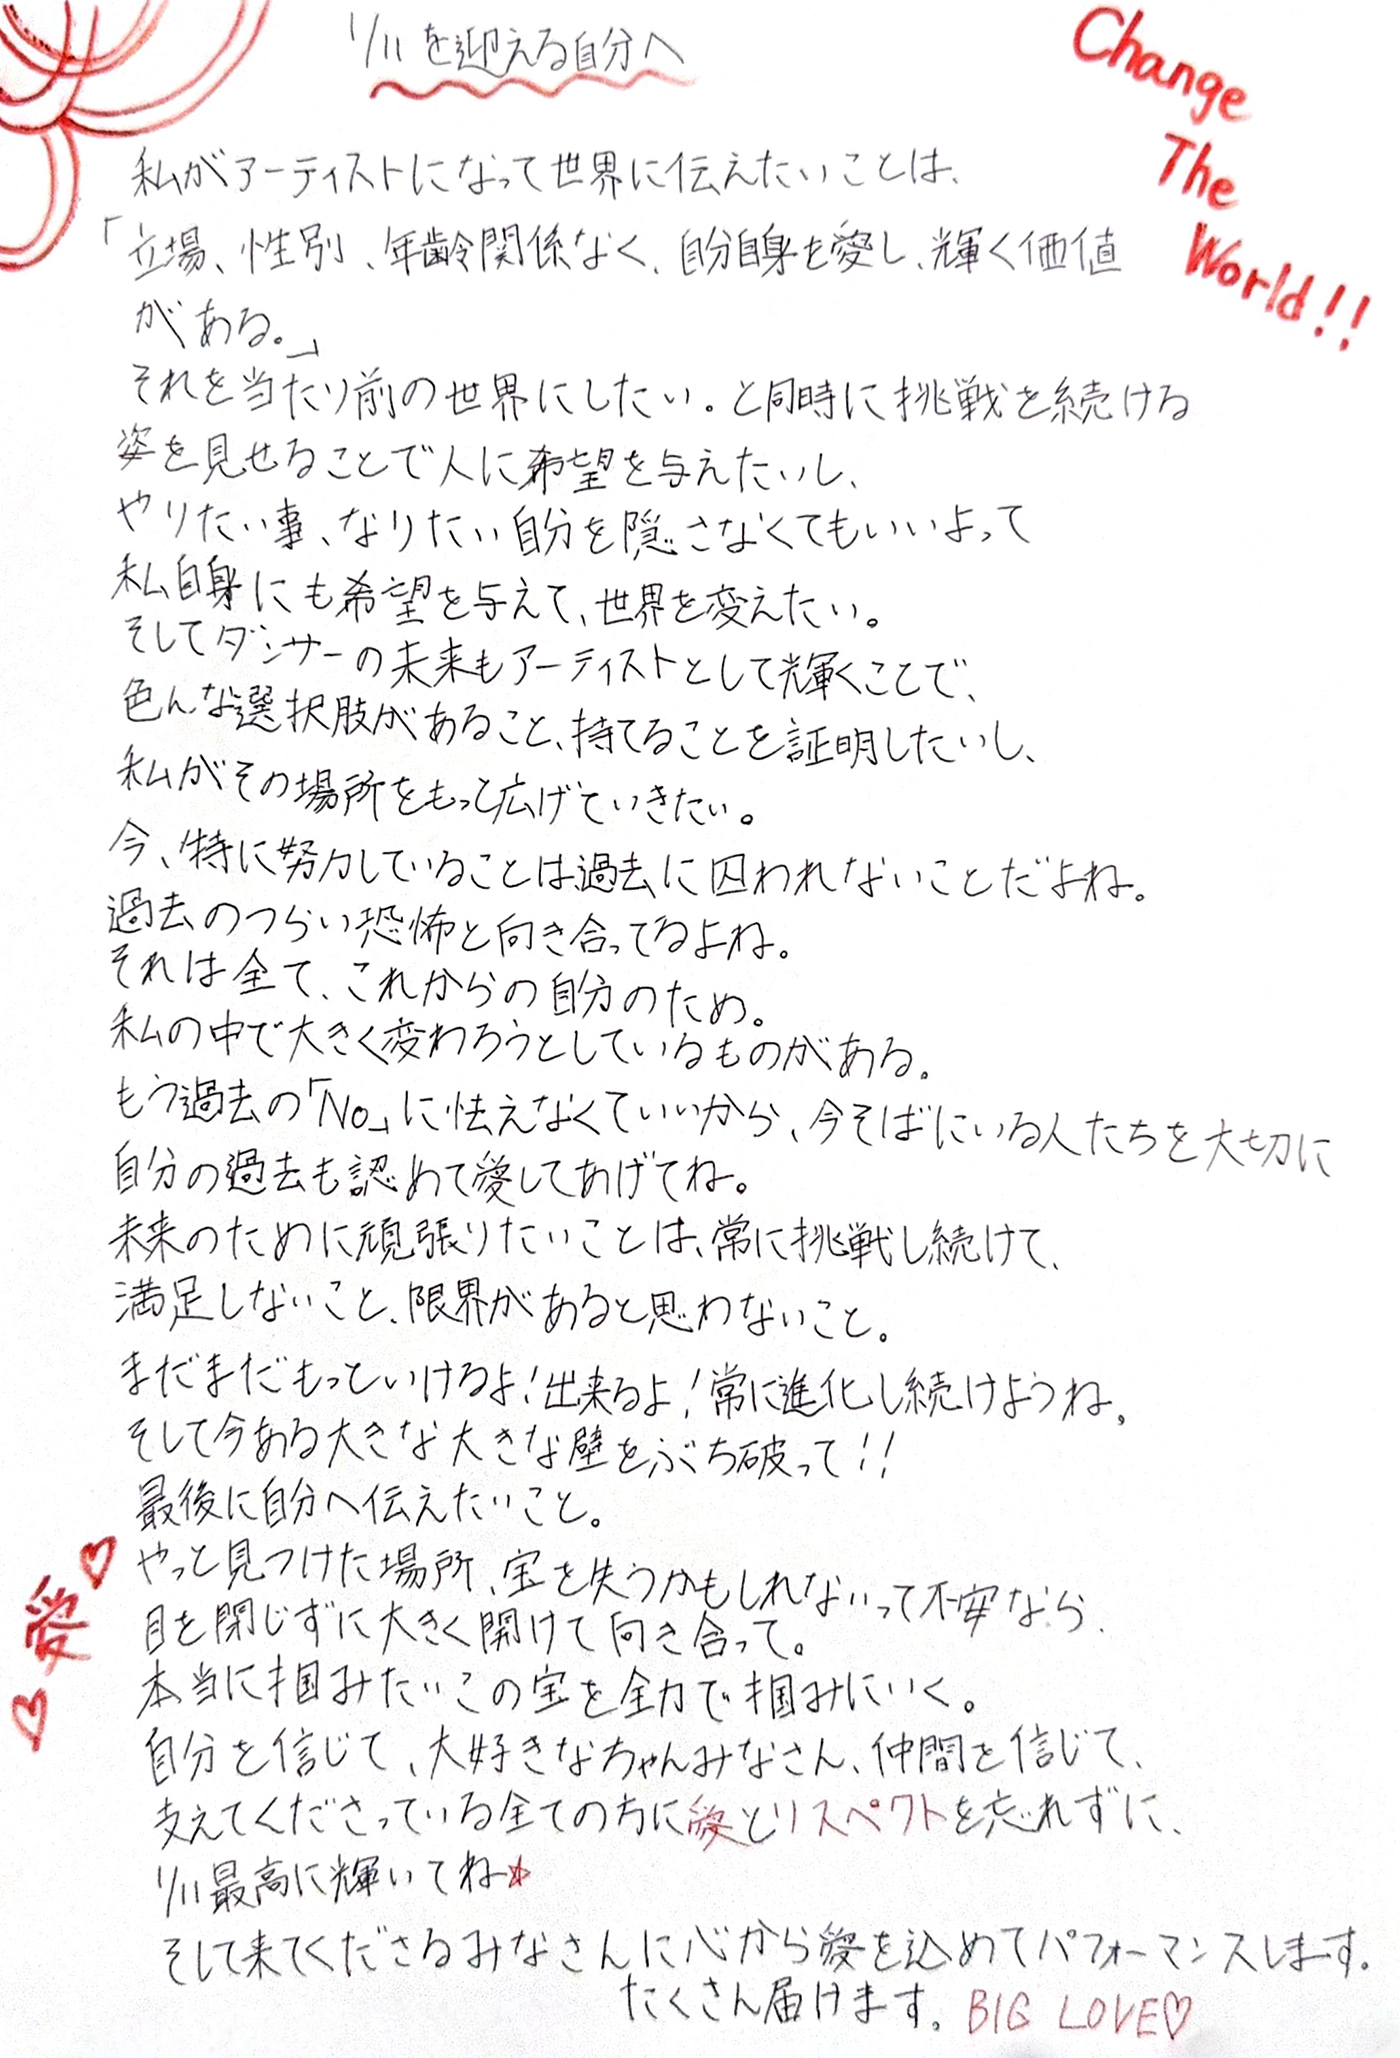 1/11を迎える自分へ
Change
The
World!!
私がアーティストになって世界に伝えたいことは、
「立場、性別、年齢関係なく、自分自身を愛し、輝く価値
がある。」
それを当たり前の世界にしたい。と同時に挑戦を続ける
姿を見せることで人に希望を与えたいし、
やりたい事、なりたい自分を隠さなくてもいいよって
私自身にも希望を与えて、世界を変えたい。
そしてダンサーの未来もアーティストとして輝くことで、
色んな選択肢があること、持てることを証明したいし、
私がその場所をもっと広げていきたい。
今、特に努力していることは過去に囚われないことだよね。
過去のつらい恐怖と向き合ってるよね。
それは全て、これからの自分のため。
私の中で大きく変わろうとしているものがある。
もう過去の「No」に怯えなくていいから、今そばにいる人たちを大切に
自分の過去も認めて愛してあげてね。
未来のために頑張りたいことは、常に挑戦し続けて、
満足しないこと、限界があると思わないこと。
まだまだもっといけるよ!出来るよ!常に進化し続けようね。
そして今ある大きな大きな壁をぶち破って!!
最後に自分へ伝えたいこと。
やっと見つけた場所、宝を失うかもしれないって不安なら、
目を閉じずに大きく開けて向き合って。
本当に掴みたいこの宝を全力で掴みにいく。
自分を信じて、大好きなちゃんみなさん、仲間を信じて、
支えてくださっている全ての方に愛とリスペクトを忘れずに、
1/11最高に輝いてね☆
そして来てくださるみなさんに心から愛を込めてパフォーマンスします。
たくさん届けます。BIG LOVE♡
♡愛♡